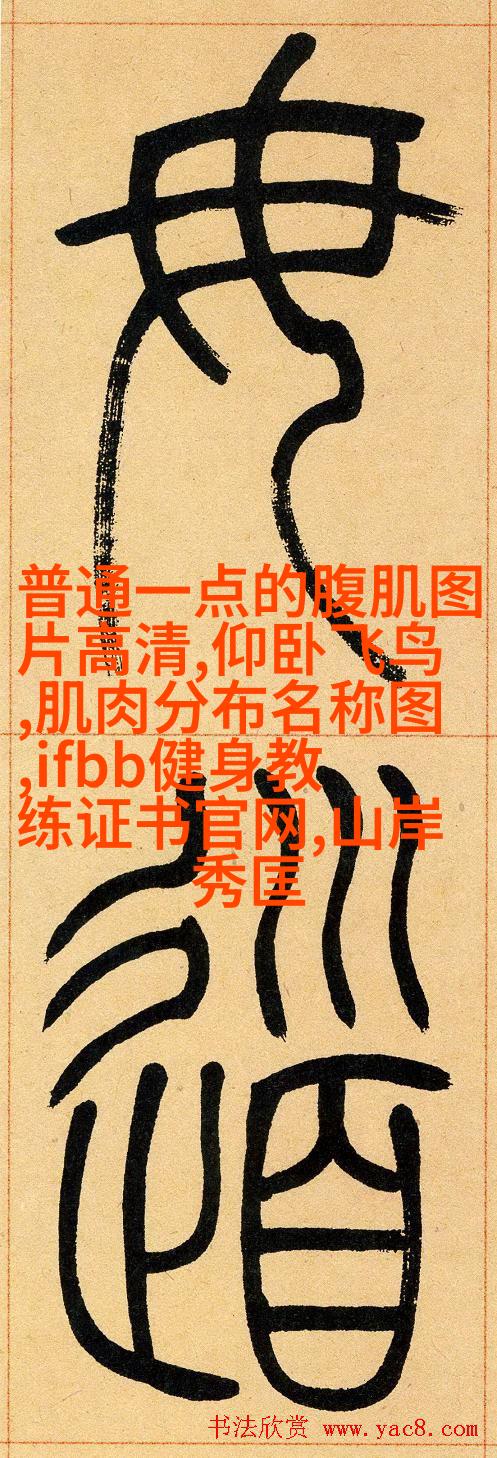 毋
普通一点的腹肌图
片高清,仰卧飞鸟
,肌肉分布名称图
,ifbb健身教
练证书官网,山岸
秀匡
道
书法欣赏 www.yac8.com